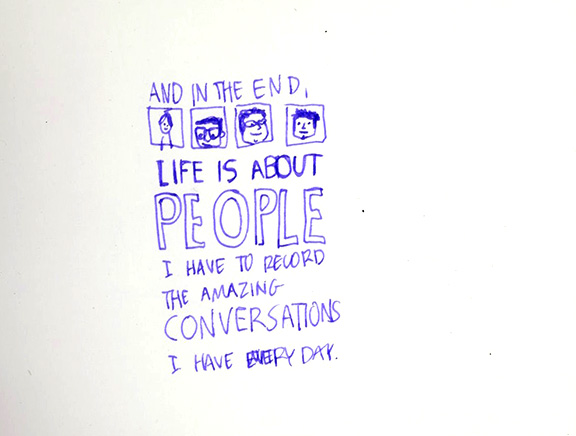 AND IN THE END,
LIFE IS ABOUT
PEOPLE
I HAVE TO RECORD
THE AMAZING
CONVERSATIONS
I HAVE EVERY DAY.